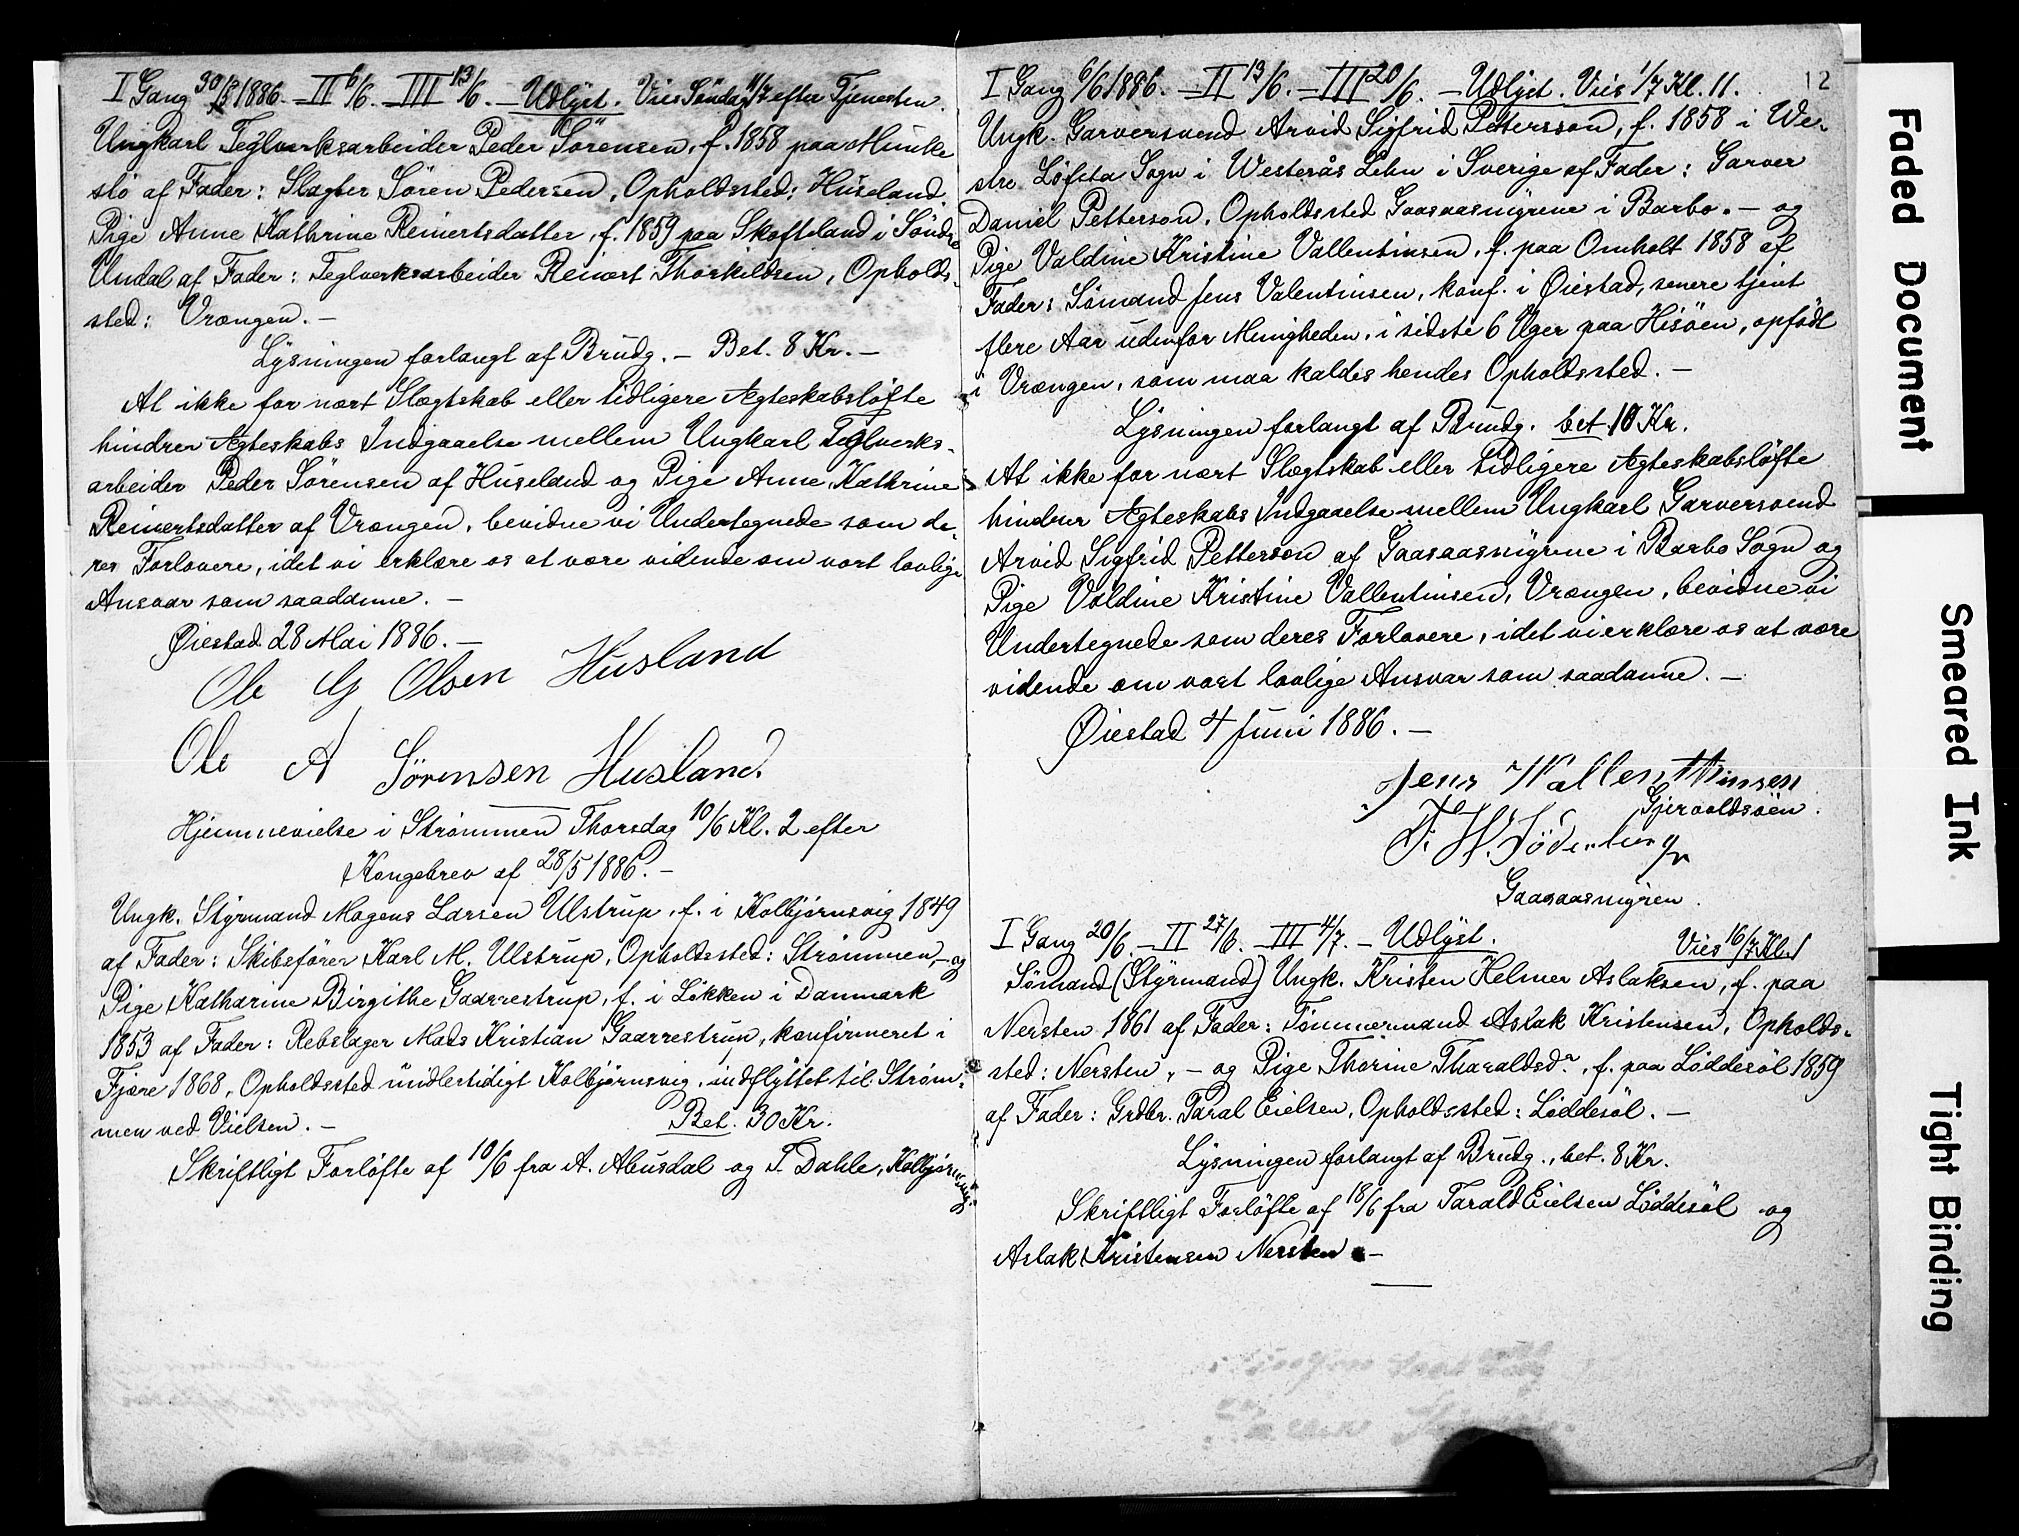 I Gang 30/5 1886. – II 6/6. – III 13/6. – Udlyst. Vies Søndag 4/7 efter Tjenesten.
Ungkarl Teglverksarbeider Peder Sörensen, f. 1858 paa Munke
slö af Fader: Slagter Sören Pedersen, Opholdssted: Huseland.
Pige Anne Kathrine Reinertsdatter, f. 1859 paa Skofteland i Söndre
Undal af Fader: Teglverksarbeider Reinert Thorkildsen, Opholds-
sted: Vrængen. –
Lysningen forlangt af Brudg. – Bet. 8 Kr. –
At ikke for nært Slægtskab eller tidligere Ægteskabsløfte
hindrer Ægteskabs Indgaaelse mellem Ungkarl Teglverks-
arbeider Peder Sørensen af Huseland og Pige Anne Kathrine
Reinertsdatter af Vrængen, bevidne vi Undertegnede som de-
res Forlovere, idet vi erklære os at være vidende om vort lovlige
Ansvar som saadanne. –
Øiestad 28 Mai 1886. –
Ole G Olsen Husland
Ole A Sørensen Husland.
Hjemmevielse i Strømmen Thorsdag 10/6 Kl. 2 efter
Kongebrev af 28/5 1886. –
Ungk. Styrmand Mogens Larsen Ulstrup, f. i Kolbjørnsvig 1849
af Fader: Skibsfører Karl M. Ulstrup, Opholdssted: Strømmen, – og
Pige Katharine Birgithe Gaarrestrup, f. i Løkken i Danmark
1853 af Fader: Rebslager Mads Kristian Gaarrestrup, konfirmeret i
Fjære 1868, Opholdssted midlertidigt Kolbjørnsvig, indflyttet til Strøm-
men ved Vielsen. – Bet. 30 Kr.
Skriftligt Forløfte af 10/6 fra A. Abusdal og T. Dahle, Kolbjørnsvig.
12
I Gang 6/6 1886. – II 13/6. – III 20/6. – Udlyst. Vies 1/7 Kl. 11.
Ungk. Garversvend Arvid Sigfrid Pettersson, f. 1858 i We-
stre Løfsta Sogn i Westerås Lehn i Sverige af Fader: Garver
Daniel Petterson, Opholdssted Gaasaasmyrene i Barbo. – og
Pige Valdine Kristine Vallentinsen, f. paa Omholt 1858 af
Fader: Sømand Jens Valentinsen, konf. i Øiestad, senere tjent
flere Aar udenfor Menigheden, i sidste 6 Uger paa Hisöen, opfödt
i Vrængen, som maa kaldes hendes Opholdssted. –
Lysningen forlangt af Brudg. bet 10 Kr.
At ikke for nært Slægtskab eller tidligere Ægteskabsløfte
hindrer Ægteskabs Indgaaelse mellem Ungkarl Garversvend
Arvid Sigfrid Petterson af Gaasaasmyrene i Barbo Sogn og
Pige Valdine Kristine Vallentinsen, Vrængen, bevidne vi
Undertegnede som deres Forlovere, idet vi erklære os at være
vidende om vort lovlige Ansvar som saadanne. –
Øiestad 4 Juni 1886. –
Jens Wallenthinsen
Gjervoldsöen.
F. W. Söderberg
Gaasaasmyren.
I Gang 20/6. – II 27/6. – III 4/7. – Udlyst. Vies 16/7 Kl. 1
Sömand (Styrmand) Ungk. Kristen Helmer Aslaksen, f. paa
Nersten 1861 af Fader: Tömmermand Aslak Kristensen, Opholds-
sted: Nersten, – og Pige Thorine Tharaldsdr, f. paa Løddesöl 1859
af Fader: Grdbr. Taral Eielsen, Opholdssted: Løddesöl. –
Lysningen forlangt af Brudg., bet. 8 Kr.
Skriftligt Forløfte af 18/6 fra Tarald Eielsen Löddesöl og
Aslak Kristensen Nersten –
Faded Document
Smeared Ink
Tight Binding